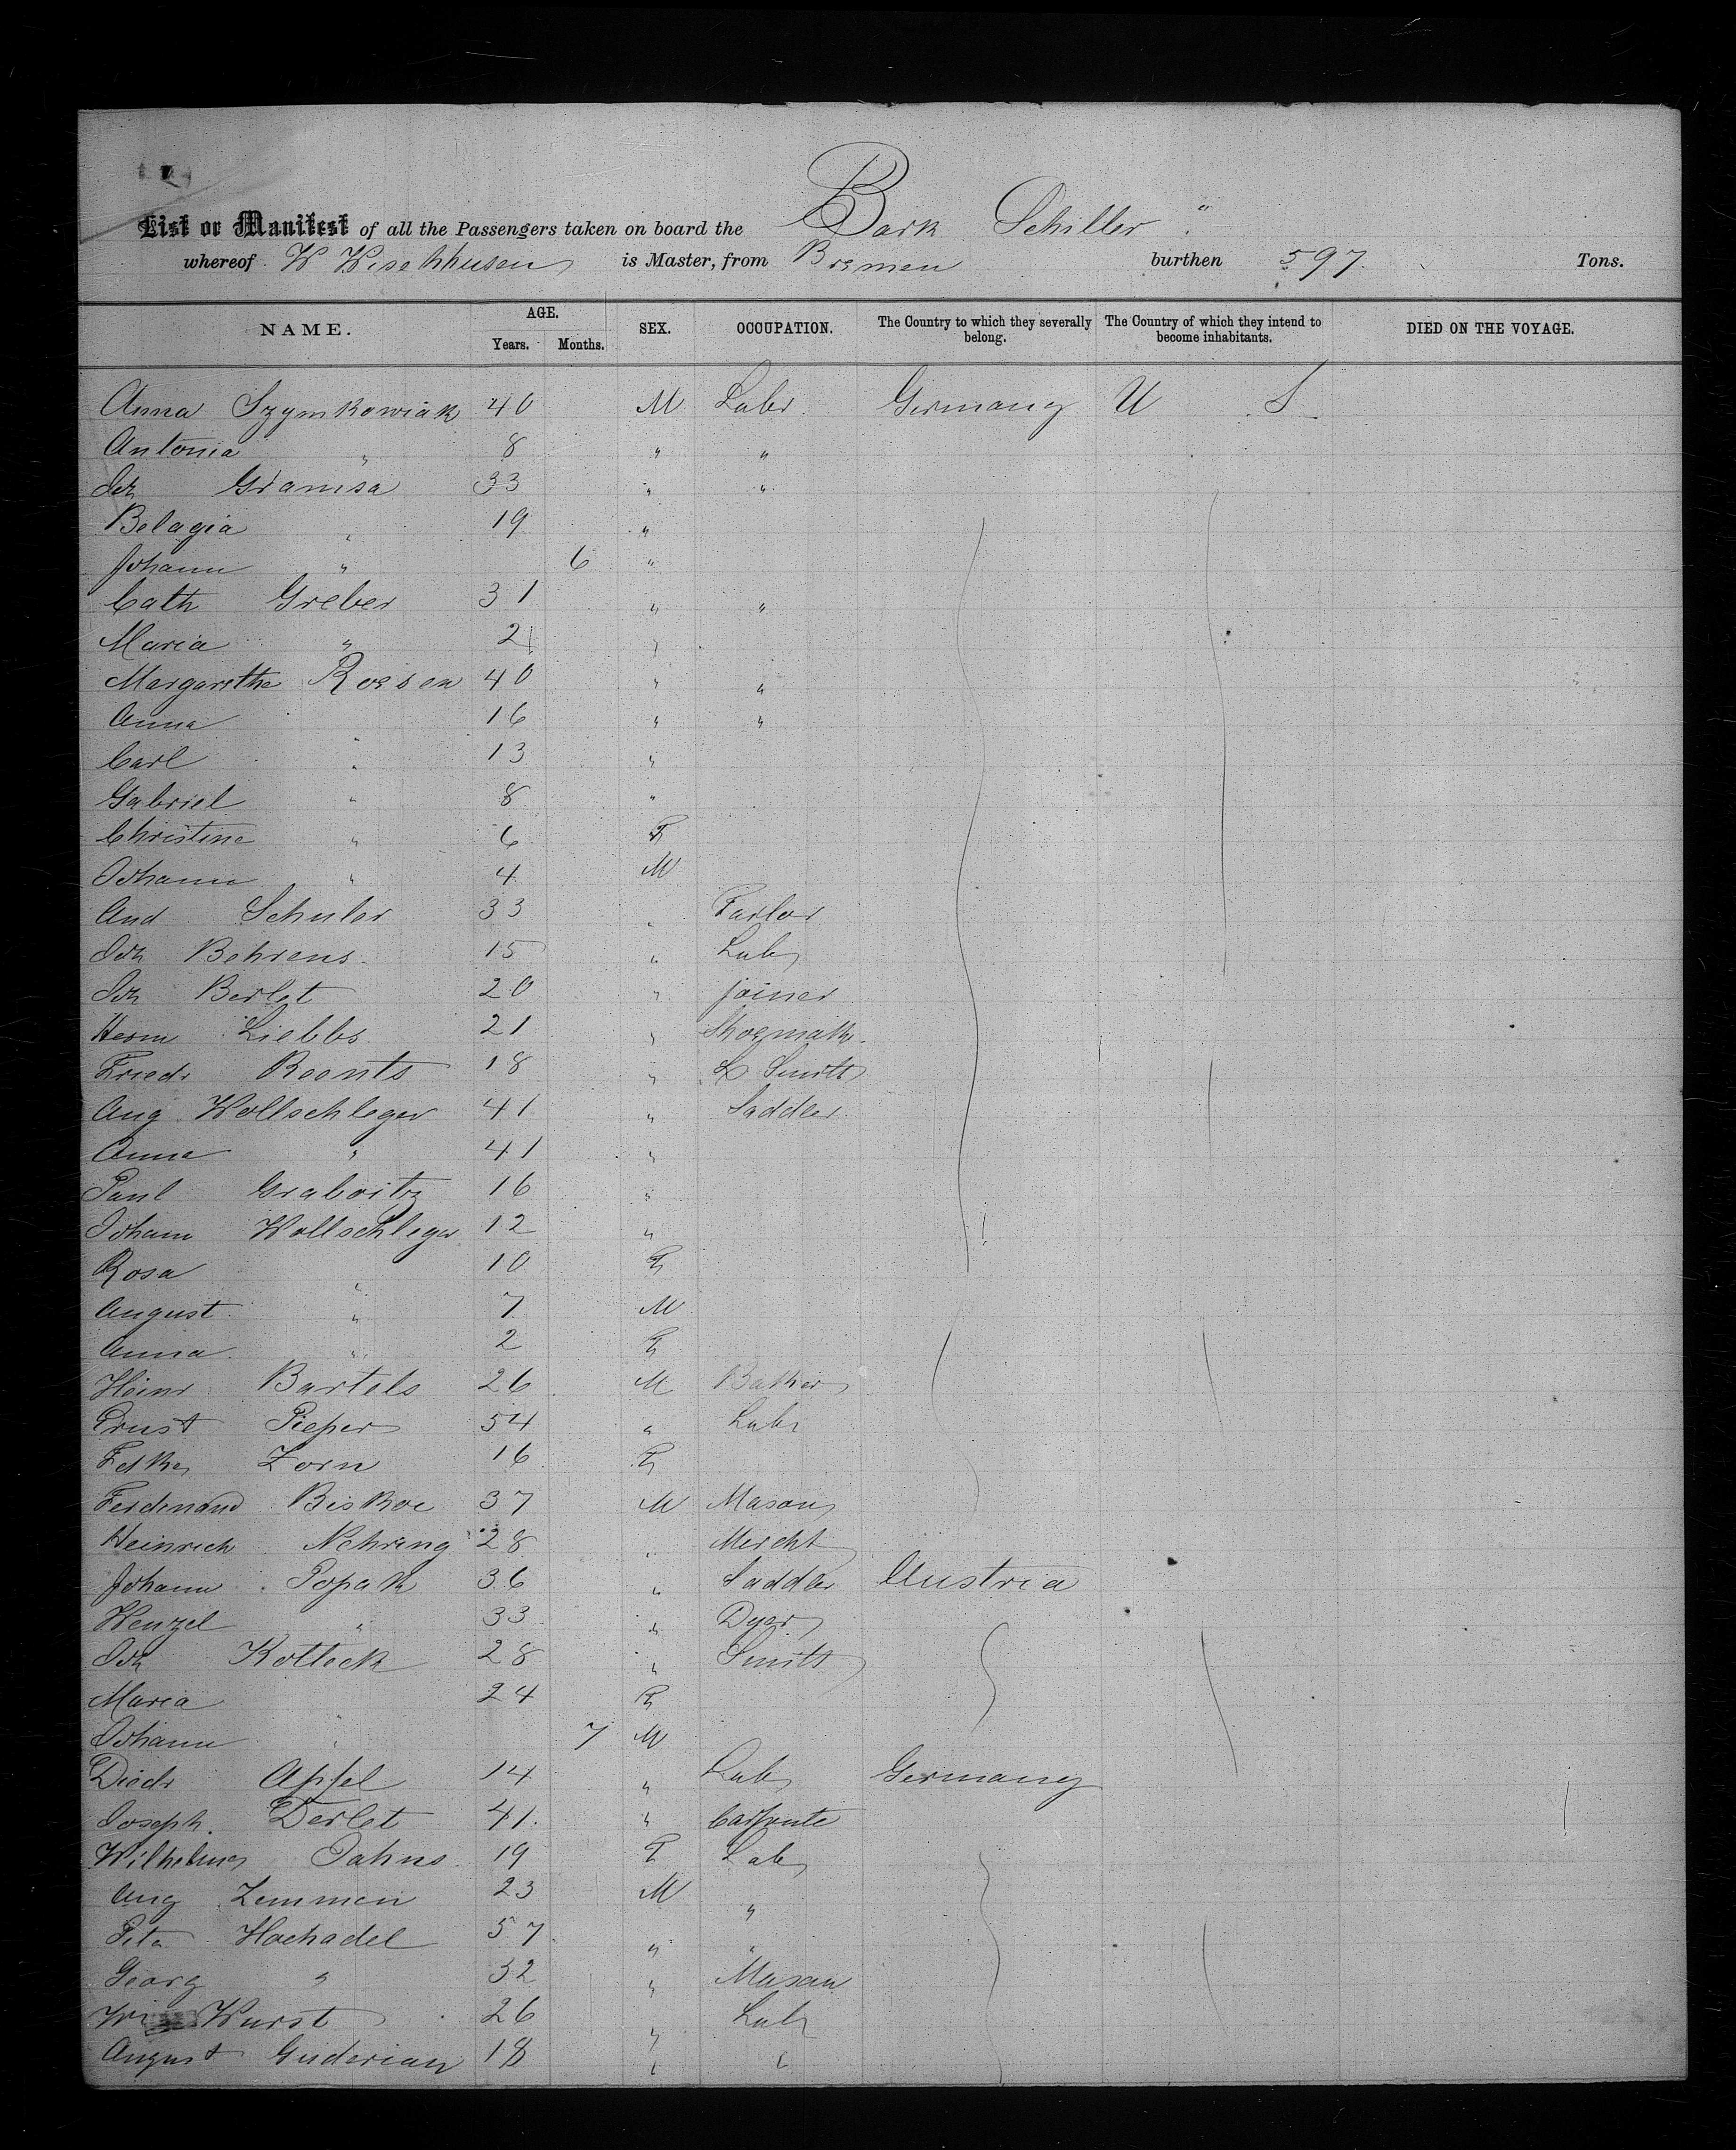 List or Manifest of all the Passengers taken on board the Bark Schiller "
whereof W Wesehhusen is Master, from Bremen burthen 597. Tons.
NAME. AGE. Years. Months. SEX. OCCUPATION. The Country to which they severally belong. The Country of which they intend to become inhabitants. DIED ON THE VOYAGE.
Anna Szymkowiak 40 M Labr. Germany U S
Antonia " 8 " "
Joh Gramsa 33 " "
Belagia " 19 "
Johann " 6 "
Cath Greber 31 " "
Maria " 2 "
Margarethe Roesen 40 " "
Anna 16 " "
Carl " 13 "
Gabriel " 8 "
Christine " 6 F
Johann " 4 M
And Schuler 33 " Tailor
Joh Behrens 15 " Lab
Joh Berlet 20 " joiner
Herm Liebbs 21 " Shoemak.
Friedr Reents 18 " L Smith
Aug Wollschleger 41 " Saddler
Anna " 41 "
Paul Graboitz 16 "
Johann Wollschleger 12 "
Rosa " 10 F
August " 7 M
Anna " 2 F
Heinr Bartels 26 M Baker
Ernst Pieper 54 " Labr
Zorn 16 F
Ferdinand Biskoe 37 M Mason
Heinrich Nehring 28 " Mercht
Johann Popak 36 " Saddler Austria
Wenzel " 33 " Dyer
Joh Kotteck 28 " Smith
Maria 24 F
Johann " 7 M
Diedr Apfel 14 " Lab Germany
Joseph. Derlet 41. " Carpente
Wilhelmer Jahns 19 F Lab
Aug Zemmen 23 M "
Peter Hochadel 57 " "
Georg " 32 " Mason
Wurst 26 " Labr
August Guderian 18 " "